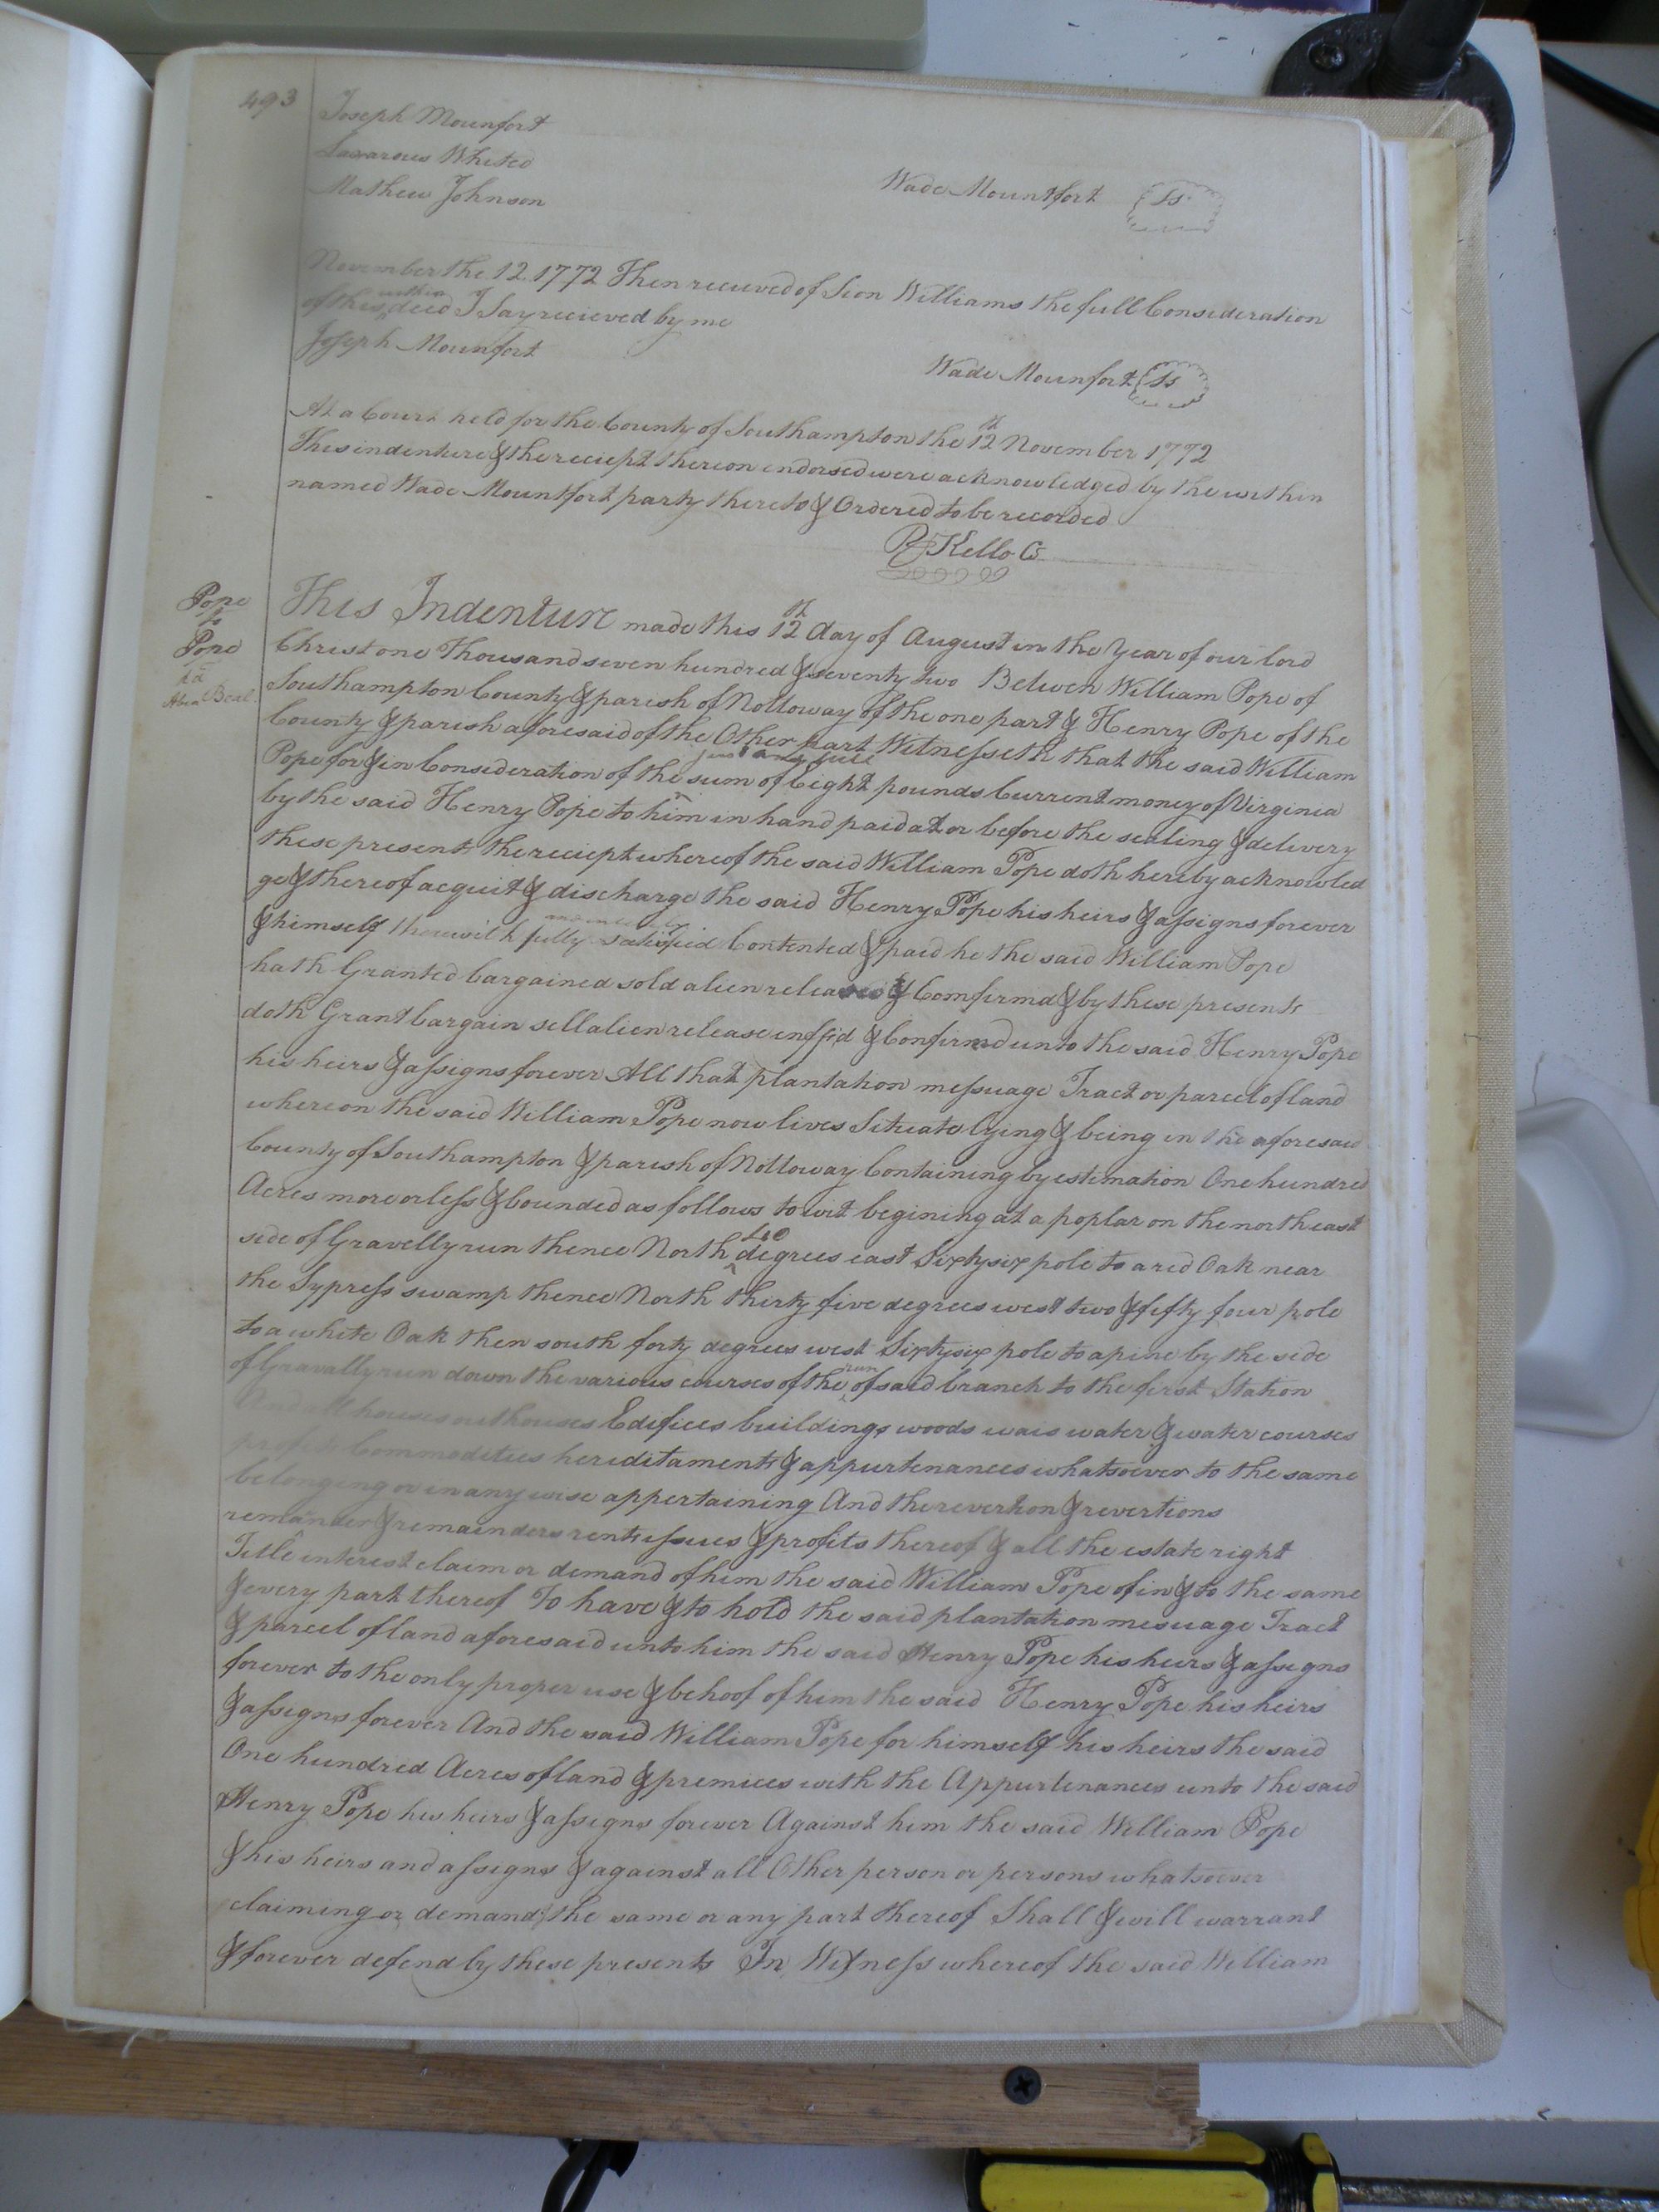 493
Joseph Mounfort
Lazarous Whited
Mathew Johnson
Wade Mountfort Ls
November the 12 1772 Then recieved of Sion Williams the full Consideration
of this within deed I Say recieved by me
Joseph Mounfort
Wade Mounfort Ls
At a Court held for the County of Southampton the 12th November 1772
This indenture & the reciept thereon endorsed were acknowledged by the within
named Wade Mountfort party thereto & Ordered to be recorded
R Kello Cs
Pope
to
Pope
dd
Beal
This Indenture made this 12th day of August in the Year of our lord
Christ one Thousand seven hundred & seventy two Between William Pope of
Southampton County & parish of Nottoway of the one part & Henry Pope of the
County & parish aforesaid of the Other part Witnesseth that the said William
Pope for & in Consideration of the just and full sum of Eight pounds Current money of Virginia
by the said Henry Pope to him in hand paid at or before the sealing & delivery
these present the reciept whereof the said William Pope doth hereby acknowled
ge & thereof acquit & discharge the said Henry Pope his heirs & assigns forever
& himself therewith fully satisfied Contented & paid he the said William Pope
hath Granted bargained sold alien released & Comfirmd & by these presents
doth Grant bargain sell alien release enffd & Confirmd unto the said Henry Pope
his heirs & assigns forever All that plantation messuage Tract or parcel of land
whereon the said William Pope now lives Situate lying & being in the aforesaid
County of Southampton & parish of Nottoway Containing by estimation One hundred
Acres more or less & bounded as follows to wit begining at a poplar on the north east
side of Gravelly run thence North 40 degrees east Sixty six pole to a red Oak near
the Sypress swamp thence North thirty five degrees west two & fifty four pole
to a white Oak then south forty degrees west Sixty six pole to a pine by the side
of Gravally run down the various courses of the run of said branch to the first Station
And all houses outhouses Edifices buildings woods wais water & water courses
profits Commodities hereditaments & appurtenances whatsoever to the same
belonging or in any wise appertaining And the revertion & revertions
remainder & remainders rents issues & profits thereof & all the estate right
Title interest claim or demand of him the said William Pope of in & to the same
& every part thereof To have & to hold the said plantation mesuage Tract
& parcel of land aforesaid unto him the said Henry Pope his heirs & assigns
forever to the only proper use & behoof of him the said Henry Pope his heirs
& assigns forever And the said William Pope for himself his heirs the said
One hundred Acres of land & premices with the Appurtenances unto the said
Henry Pope his heirs & assigns forever Against him the said William Pope
& his heirs and assigns & against all Other person or persons whatsoever
claiming or demand the same or any part thereof Shall & will warrant
& forever defend by these presents In Witness whereof the said William